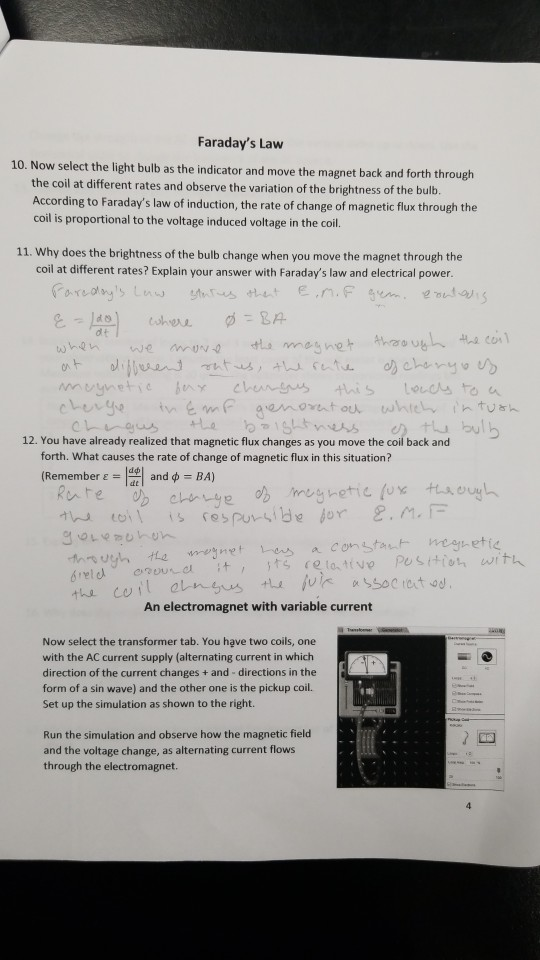 Faraday's Law
10. Now select the light bulb as the indicator and move the magnet back and forth through
the coil at different rates and observe the variation of the brightness of the bulb.
According to Faraday's law of induction, the rate of change of magnetic flux through the
coil is proportional to the voltage induced voltage in the coil.
11. Why does the brightness of the bulb change when you move the magnet through the
coil at different rates? Explain your answer with Faraday's law and electrical power.
Faraday's Law states that E.M.F
ε = |dø/dt| where ø = BA
when we move the magnet through the coil
at different rates, the rate of change of
magnetic flux changes this leads to a
change in Emf which in turn
changes the brightness of the bulb
12. You have already realized that magnetic flux changes as you move the coil back and
forth. What causes the rate of change of magnetic flux in this situation?
(Remember ε = |dϕ/dt| and ϕ = BA)
Rate of change of magnetic flux through
the coil is responsible for E.M.F
generation
through the magnet has a constant magnetic
field around it, its relative position with
the coil changes the flux associated.
An electromagnet with variable current
Now select the transformer tab. You have two coils, one
with the AC current supply (alternating current in which
direction of the current changes + and - directions in the
form of a sin wave) and the other one is the pickup coil.
Set up the simulation as shown to the right.
Run the simulation and observe how the magnetic field
and the voltage change, as alternating current flows
through the electromagnet.
Transformer
Generator
Electromagnet
Pickup Coil
4